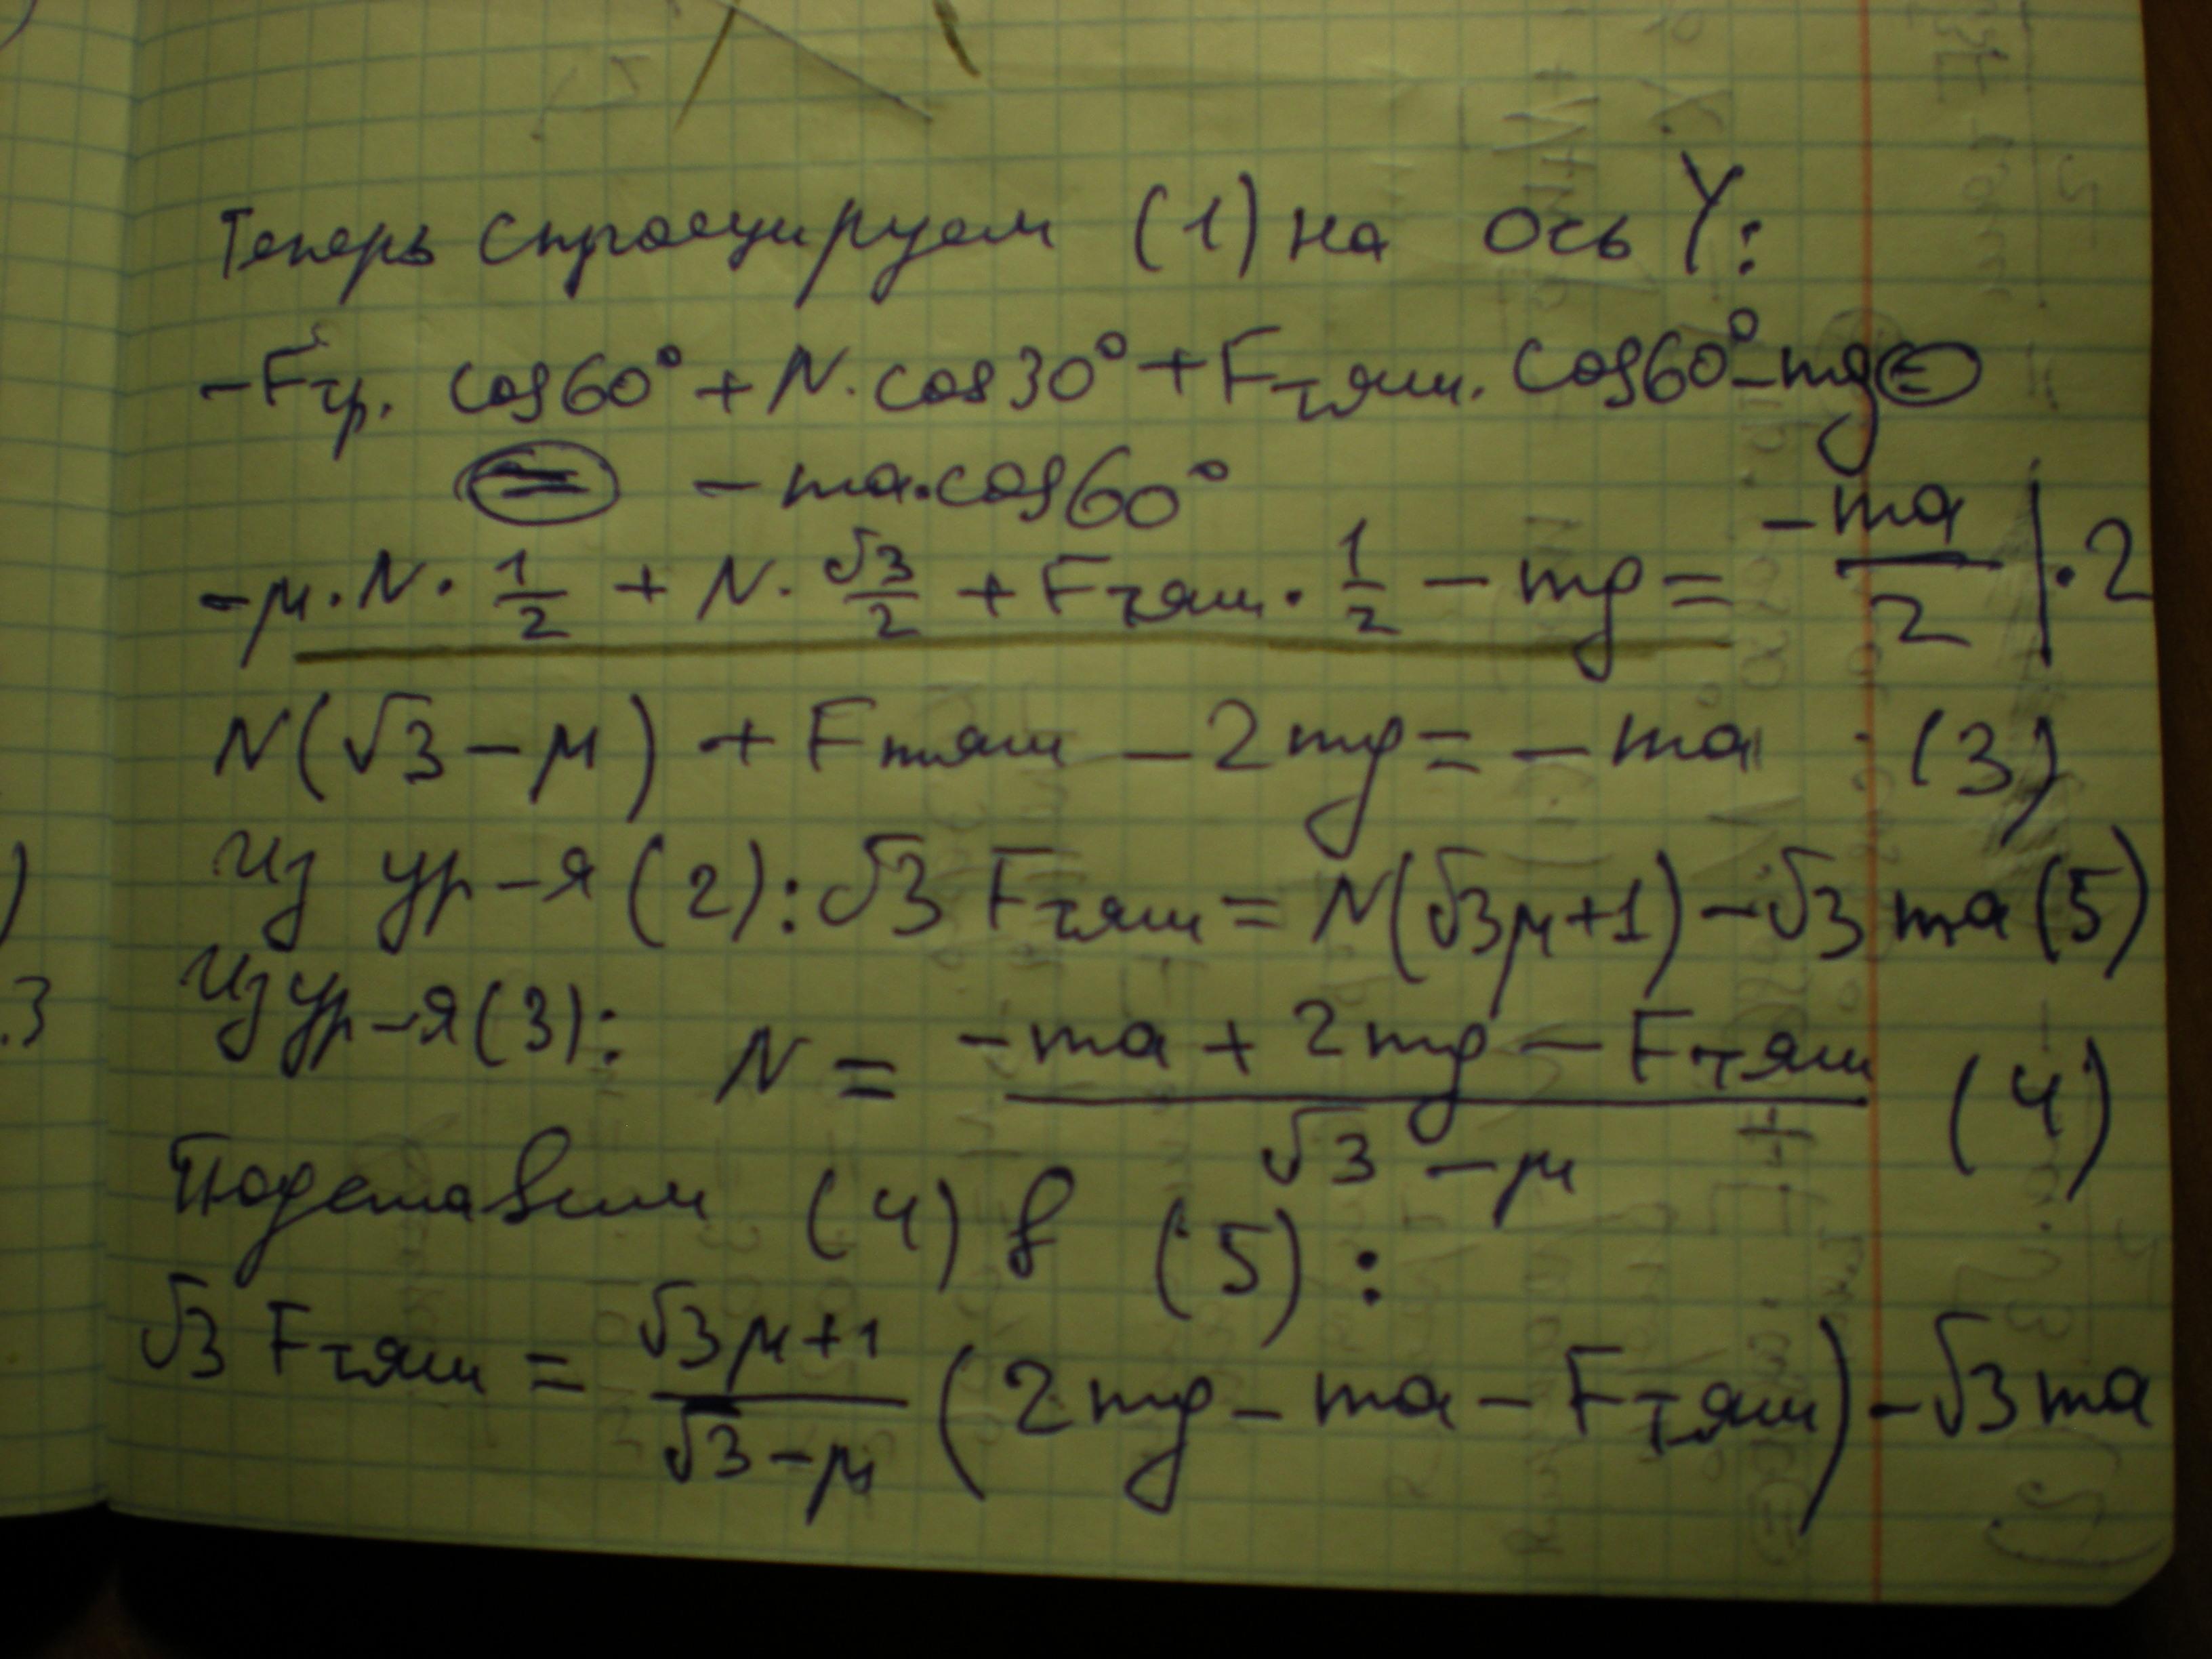 Теперь спроецируем (1) на ось Y:
-Fтр. cos60° + N·cos30° + Fтяж. cos60° - mg =
= -ma·cos60°
-μ·N·1/2 + N·√3/2 + Fтяж·1/2 - mg = -ma/2 |·2
N(√3-μ) + Fтяж - 2mg = -ma (3)
Из ур-я (2): √3 Fтяж = N(√3μ+1) - √3 ma (5)
Из ур-я (3): N = (-ma + 2mg - Fтяж)/(√3 - μ) (4)
Подставим (4) в (5):
√3 Fтяж = (√3μ+1)/(√3-μ) (2mg - ma - Fтяж) - √3 ma